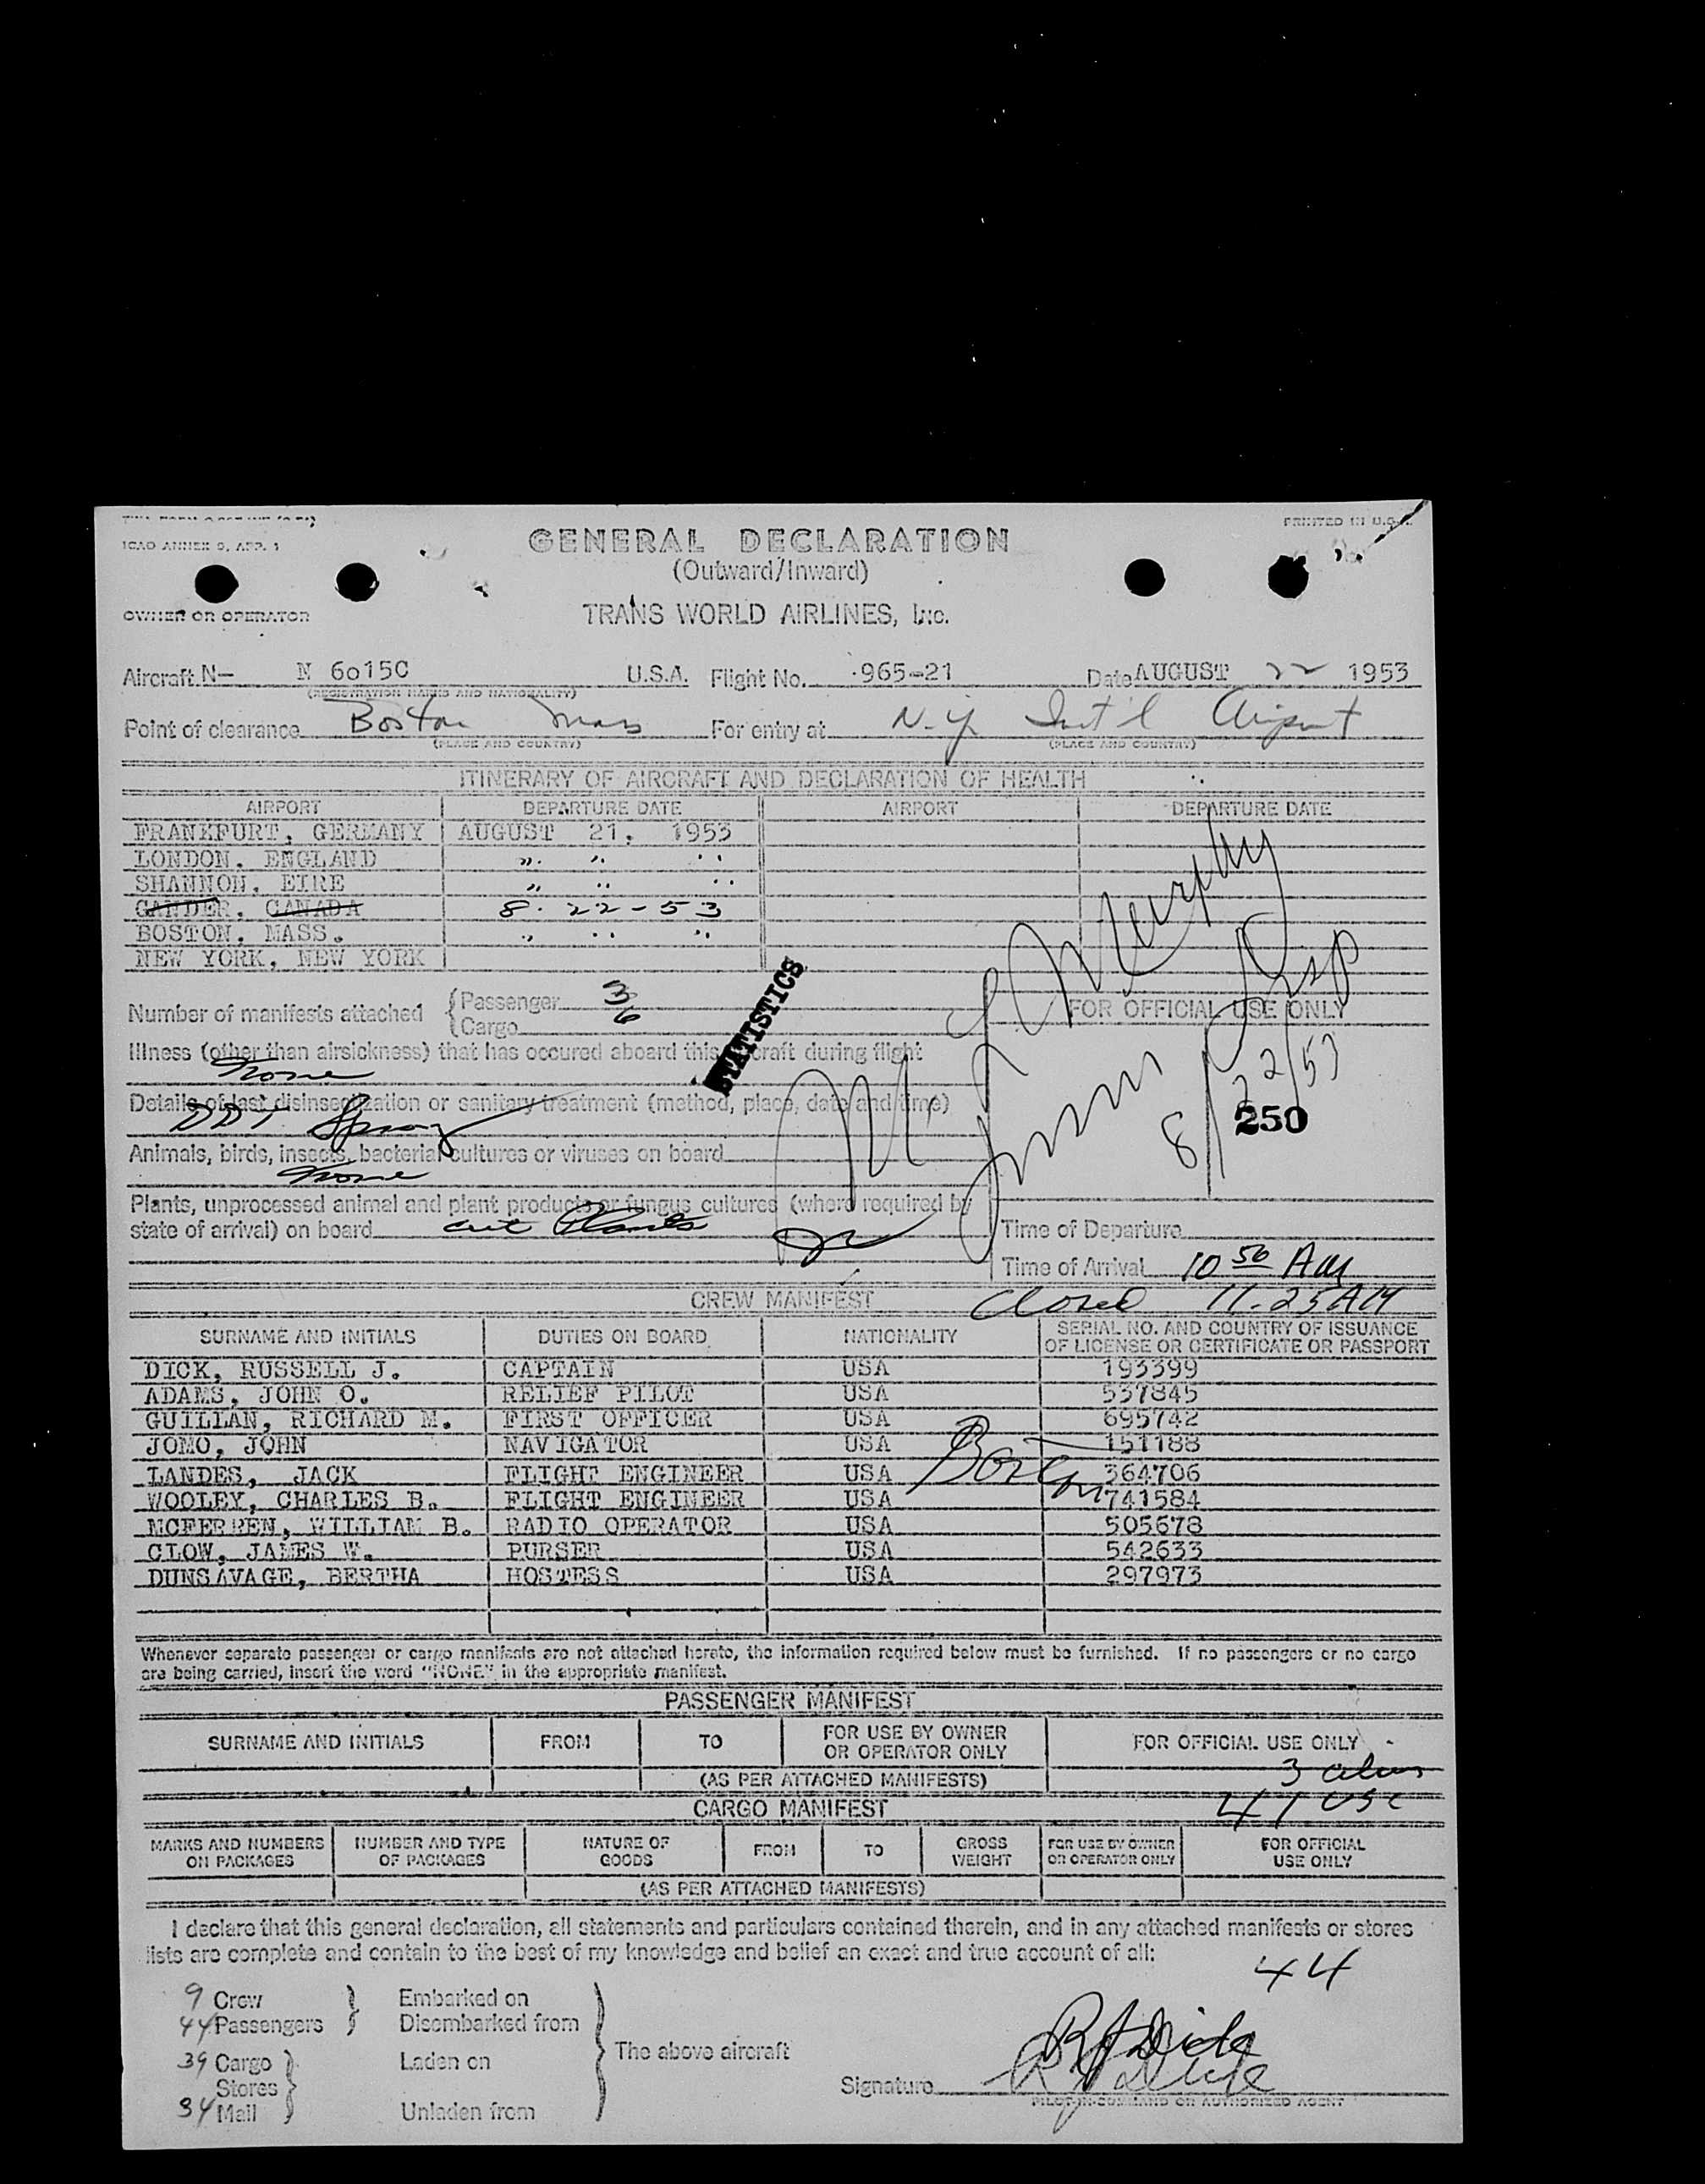 PRINTED IN U.S.A.
ICAO ANNEX 9, APP. 1
GENERAL DECLARATION
(Outward/Inward)
OWNER OR OPERATOR
TRANS WORLD AIRLINES, Inc.
Aircraft N— N 6015C U.S.A. Flight No. 965-21 Date AUGUST 22 1953
(REGISTRATION MARKS AND NATIONALITY)
Point of clearance Boston Mass For entry at N.Y. Int'l Airport
(PLACE AND COUNTRY) (PLACE AND COUNTRY)
ITINERARY OF AIRCRAFT AND DECLARATION OF HEALTH
AIRPORT DEPARTURE DATE AIRPORT DEPARTURE DATE
FRANKFURT, GERMANY AUGUST 21, 1953
LONDON, ENGLAND " " "
SHANNON, EIRE " " "
GANDER, CANADA 8-22-53
BOSTON, MASS. " " "
NEW YORK, NEW YORK
Murphy
Insp
8/22/53
STATISTICS
Number of manifests attached { Passenger 3
Cargo 6
FOR OFFICIAL USE ONLY
Illness (other than airsickness) that has occured aboard this aircraft during flight
None
Details of last disinsectization or sanitary treatment (method, place, date and time)
DDT Spray
250
Animals, birds, insects, bacterial cultures or viruses on board
None
Plants, unprocessed animal and plant products or fungus cultures (where required by
state of arrival) on board cut Plants
Time of Departure
Time of Arrival 10 50 AM
Closed 11.25 AM
CREW MANIFEST
SURNAME AND INITIALS DUTIES ON BOARD NATIONALITY SERIAL NO. AND COUNTRY OF ISSUANCE OF LICENSE OR CERTIFICATE OR PASSPORT
DICK, RUSSELL J. CAPTAIN USA 193399
ADAMS, JOHN O. RELIEF PILOT USA 537845
GUILLAN, RICHARD M. FIRST OFFICER USA 695742
JOMO, JOHN NAVIGATOR USA 151188
LANDES, JACK FLIGHT ENGINEER USA 364706
WOOLEY, CHARLES B. FLIGHT ENGINEER USA 741584
MCFERREN, WILLIAM B. RADIO OPERATOR USA 505678
CLOW, JAMES W. PURSER USA 542633
DUNSAVAGE, BERTHA HOSTESS USA 297973
Whenever separate passenger or cargo manifests are not attached hereto, the information required below must be furnished. If no passengers or no cargo
are being carried, insert the word "NONE" in the appropriate manifest.
PASSENGER MANIFEST
SURNAME AND INITIALS FROM TO FOR USE BY OWNER OR OPERATOR ONLY FOR OFFICIAL USE ONLY
(AS PER ATTACHED MANIFESTS) 3
41 USC
CARGO MANIFEST
MARKS AND NUMBERS ON PACKAGES NUMBER AND TYPE OF PACKAGES NATURE OF GOODS FROM TO GROSS WEIGHT FOR USE BY OWNER OR OPERATOR ONLY FOR OFFICIAL USE ONLY
(AS PER ATTACHED MANIFESTS)
I declare that this general declaration, all statements and particulars contained therein, and in any attached manifests or stores
lists are complete and contain to the best of my knowledge and belief an exact and true account of all:
44
9 Crew Embarked on
44 Passengers Disembarked from
39 Cargo Laden on The above aircraft
Stores
34 Mail Unladen from
Signature R J Dick
PILOT-IN-COMMAND OR AUTHORIZED AGENT